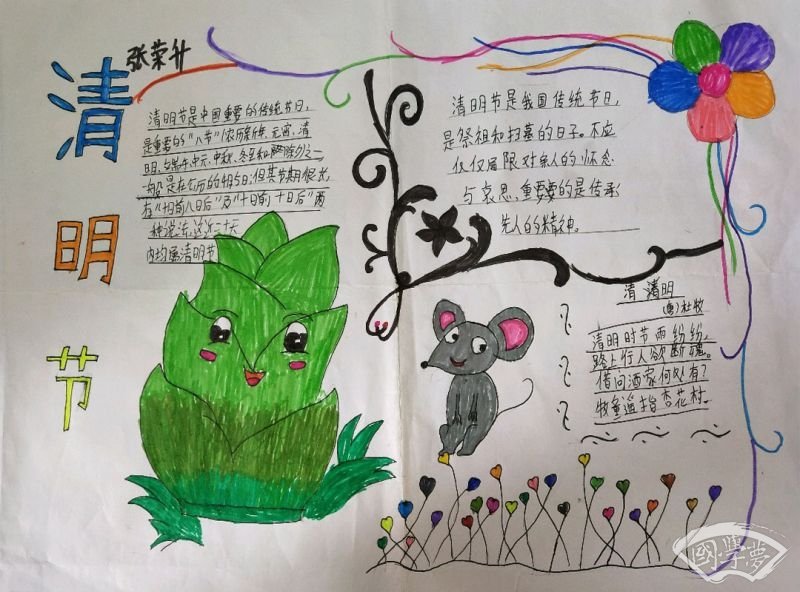 清明节
张荣升
清明节是中国重要的传统节日,
是重要的“八节”(农历新年、元宵、清
明、端午、中元、中秋、冬至和除夕)之一
一般是在公历的4月5日,但其节期很长,
有“十日前八日后”及“十日前十日后”两
种说法,这近二十天
内均属清明节
清明节是我国传统节日,
是祭祖和扫墓的日子。不应
仅仅局限对亲人的怀念
与哀思,重要的是传承
先人的精神。
清 清明
(唐)杜牧
清明时节雨纷纷,
路上行人欲断魂。
借问酒家何处有?
牧童遥指杏花村。
國學夢